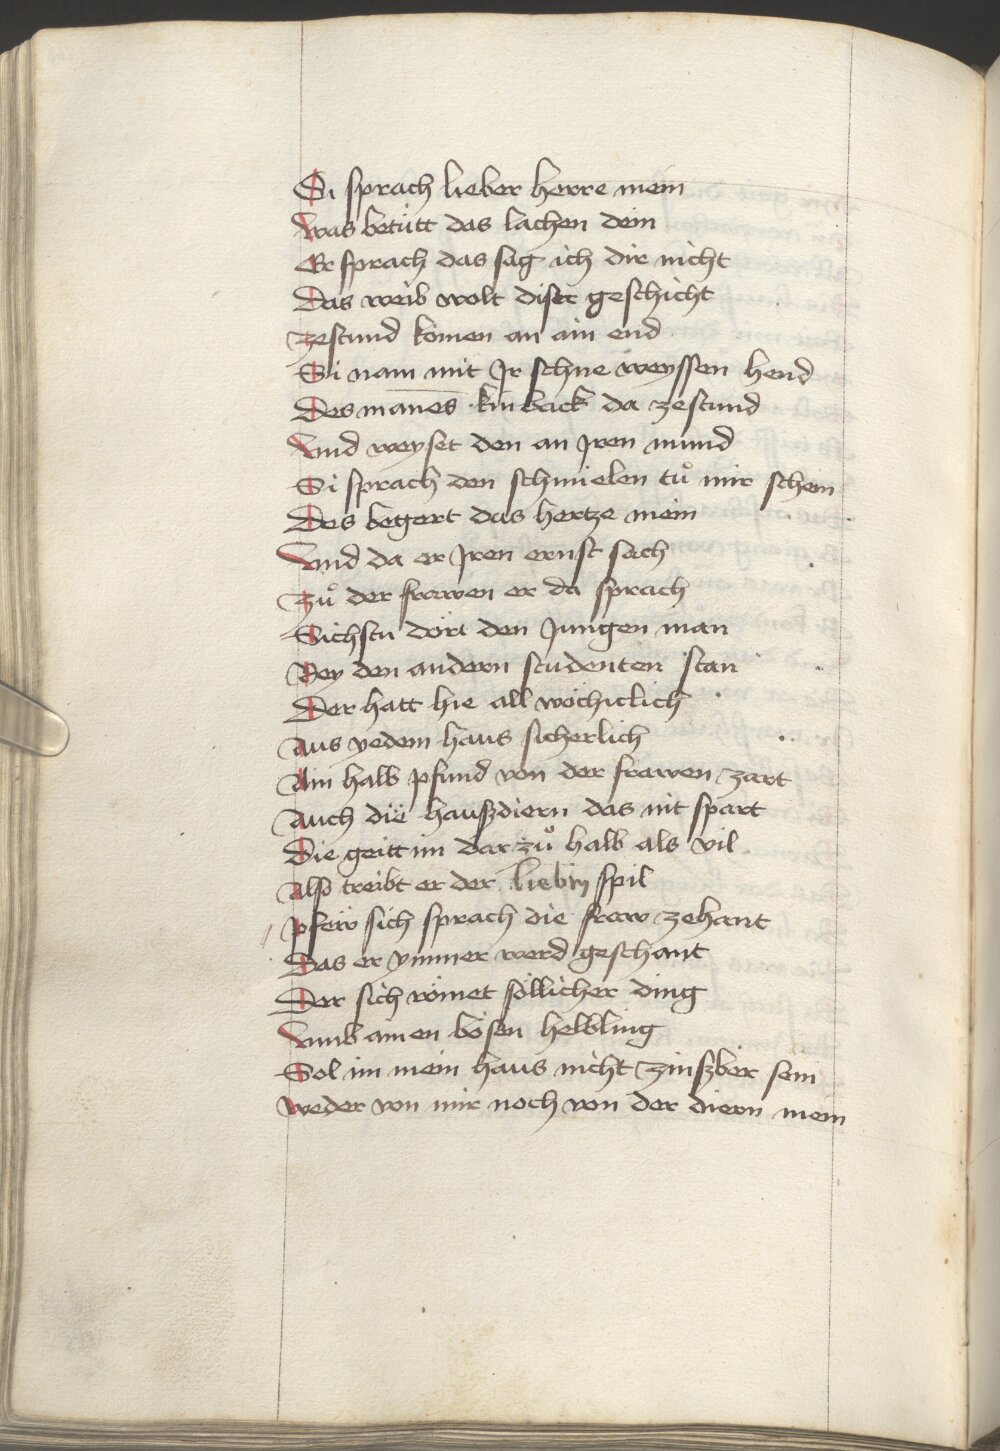 Si sprach lieber herre mein
was betütt das lachen dein
Er sprach das sag ich dir nicht
Das weib wolt diser geschicht
zestund komen an ain end
Si nam mit Jr schne weyssen hend
Des manēs kinback da zestund
vnd weyset den an Jren mund
Si sprach den schmielen tuͦ mir schein
Des begert das hertze mein
vnd da er Jren ernst sach
Zuͦ der frawen er da sprach
Sichstu dört den Jungen man
Bey den andern studenten stan
Der hatt hie all wöchiclich
Aus yedem haus sicherlich
Ain halb pfund von der frawen zart
Auch die hauszdiern das nit spart
Die geitt im dar zuͦ halb als vil
Also treibt er der liebin spil
pfew sich sprach die fraw zehant
Das er ymmer werd geschant
Der sich römet söllicher ding
vmb ainen bösen helbling
Sol im mein haus nicht zinszber sein
weder von mir noch von der diern mein